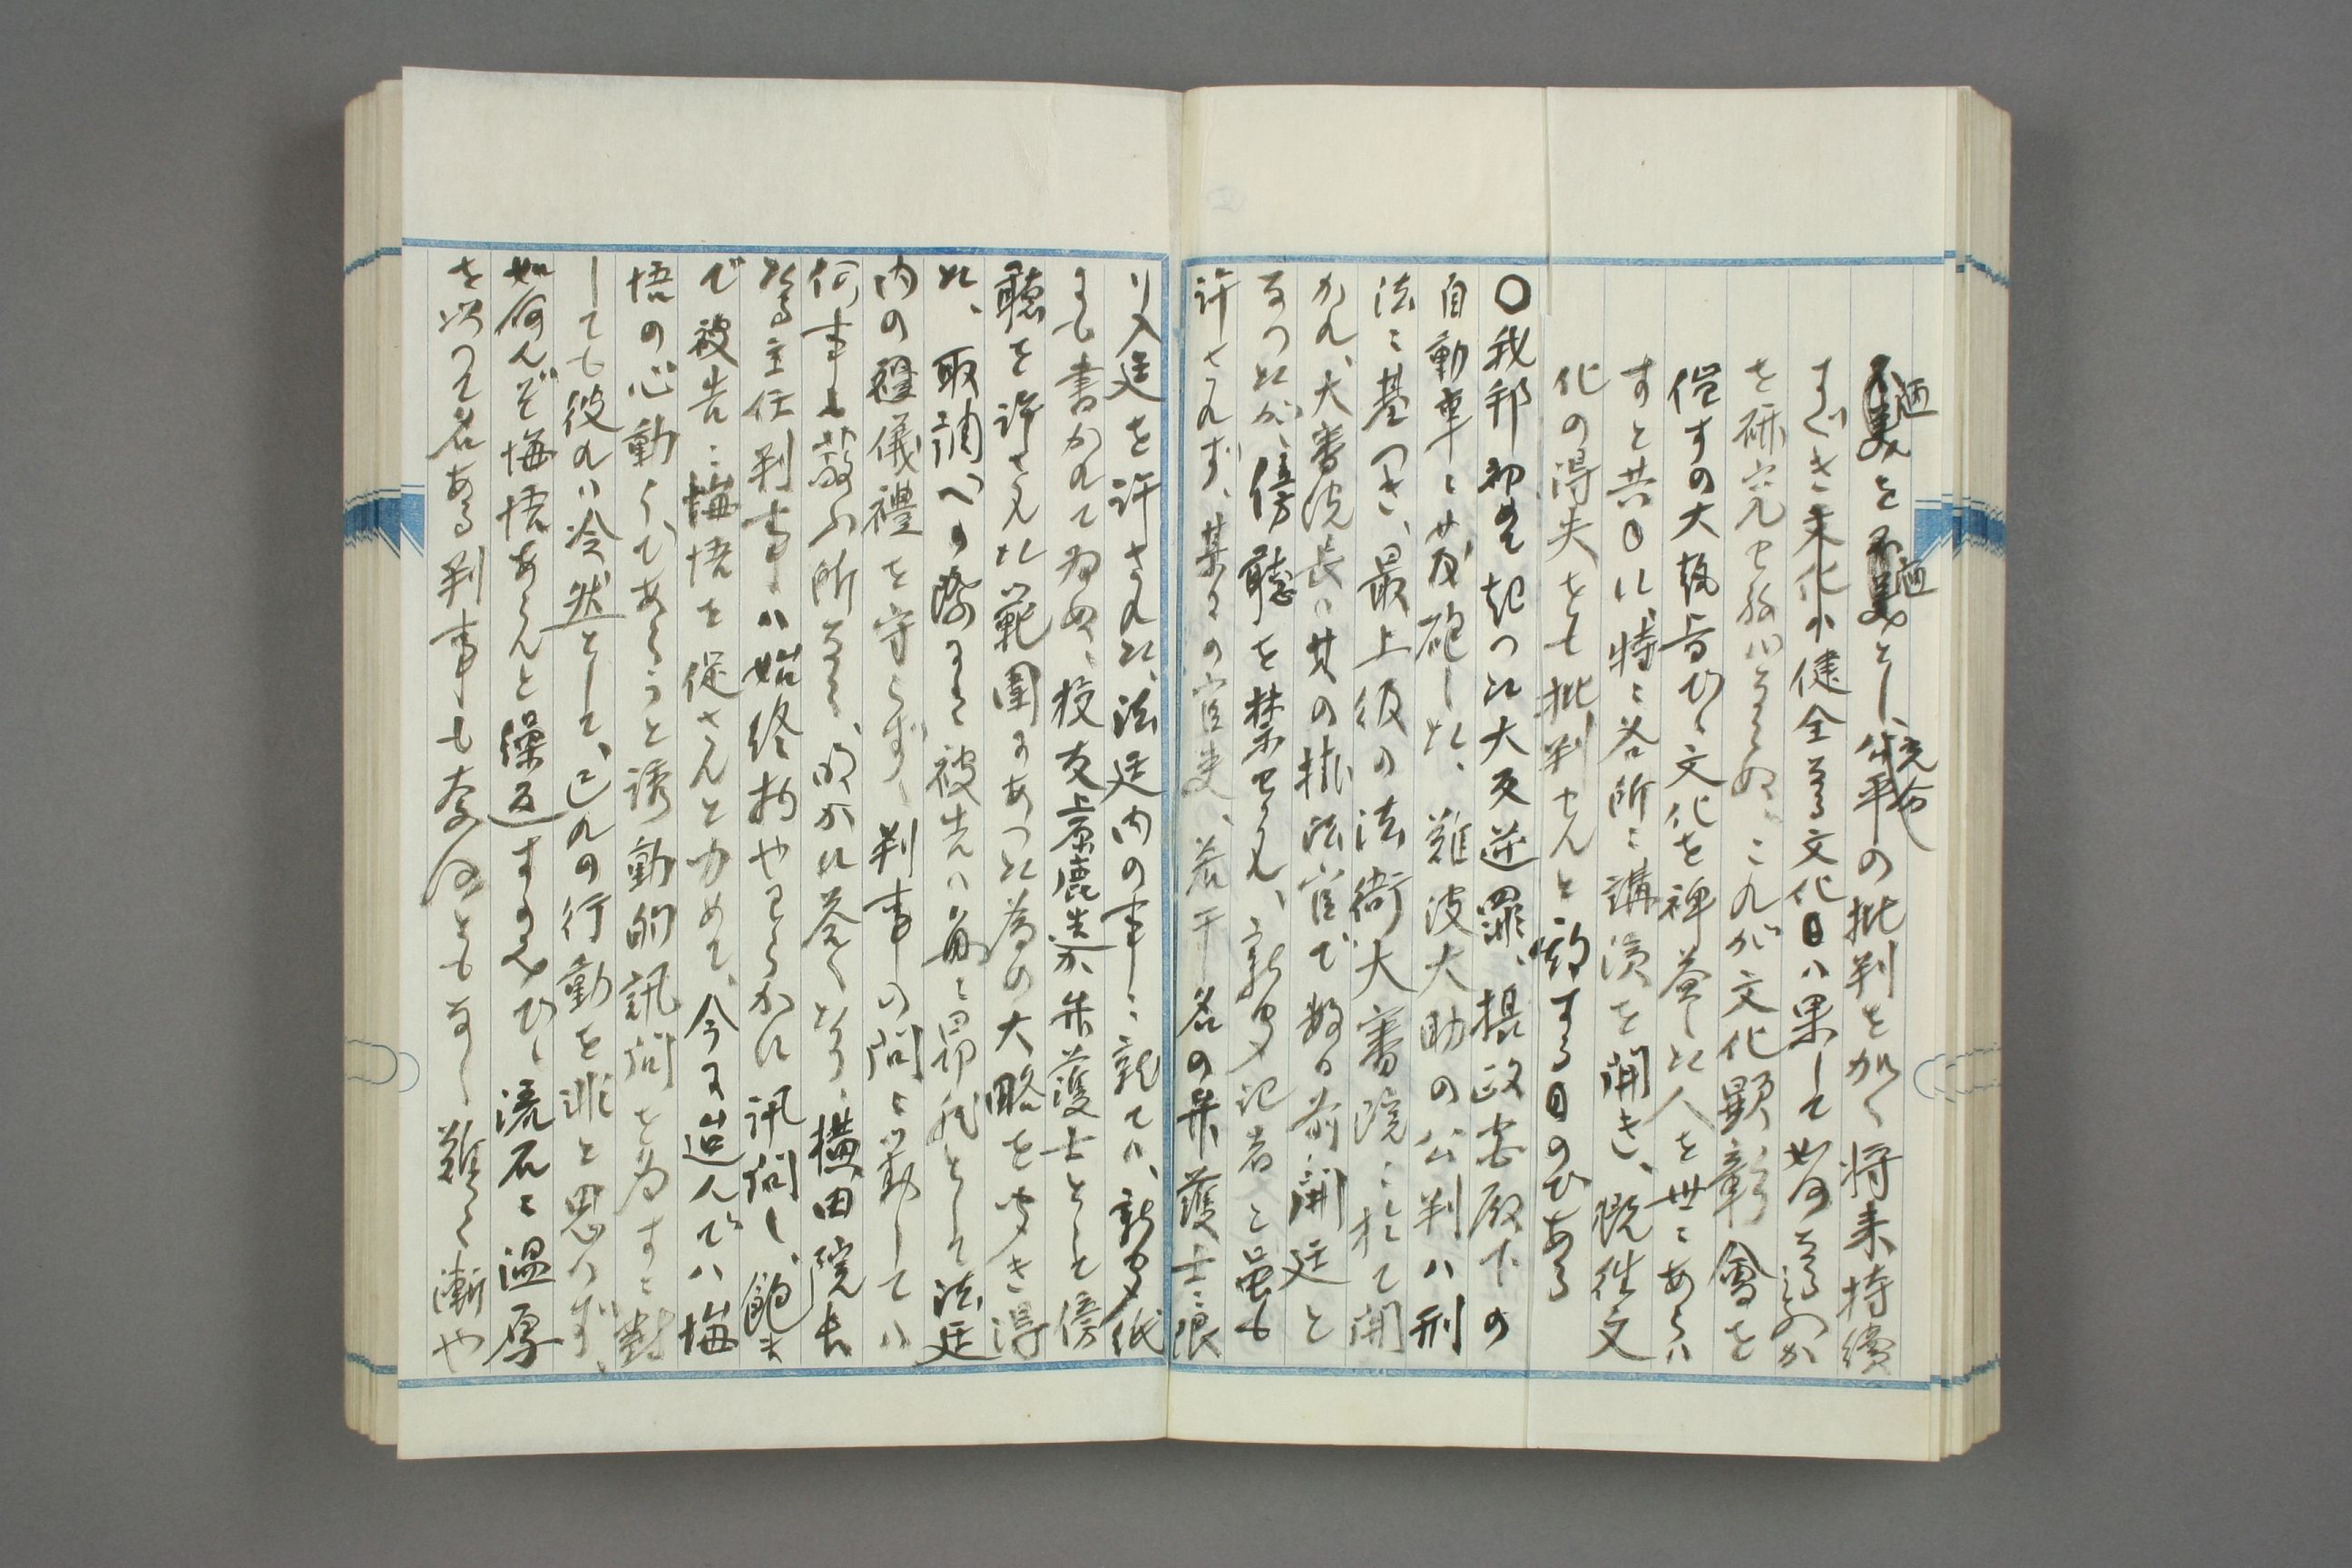 適を不適とし、充分の批判を加へ将来持續
すべき文化や健全なる文化日ハ果して如何なるものか
を研究せねバならぬ、これが文化顕彰會を
促すの大趣旨で、文化を裨益した人を世にあらハ
すと共に、特に各所に講演を開き、既徃文
化の得失をも批判せんと欲する目のである
〇我邦初めて起つた大反逆罪、摂政宮殿下の
自動車に発砲した、難波大助の公判ハ刑
法に基つき、最上級の法衙大審院に於て開
かれ、大審院長ハ其の裁判官で数日前開廷と
なつたが、傍聴を禁ぜられ、新聞記者と雖も
許されず、某々の官吏、若干名の弁護士に限
り入廷を許された、法廷内の事に就てハ、新聞紙
にも書かれて居ぬ、校友上原鹿造が弁護士として傍
聴を許された範囲にあつた為め大略を聞き得
た、取調べの際にも被告ハ最も昂然として法廷
内の禮儀を守らず、判事の問に対してハ
何事も敬ふ所なく、問かれ答へたり、横田院長
なる主任判事ハ始終物やわらかに訊問し、飽まで
で被告に悔悟を促さんと力めて、今に迨んでハ悔
悟の心動くであらうと誘動的訊問を為すに對
しても彼れハ冷然として、己れの行動を非と思ハず、
如何んぞ悔悟あらんと繰返すのみで、流石に温厚
を以つて名ある判事も奈何ともなし難く漸や